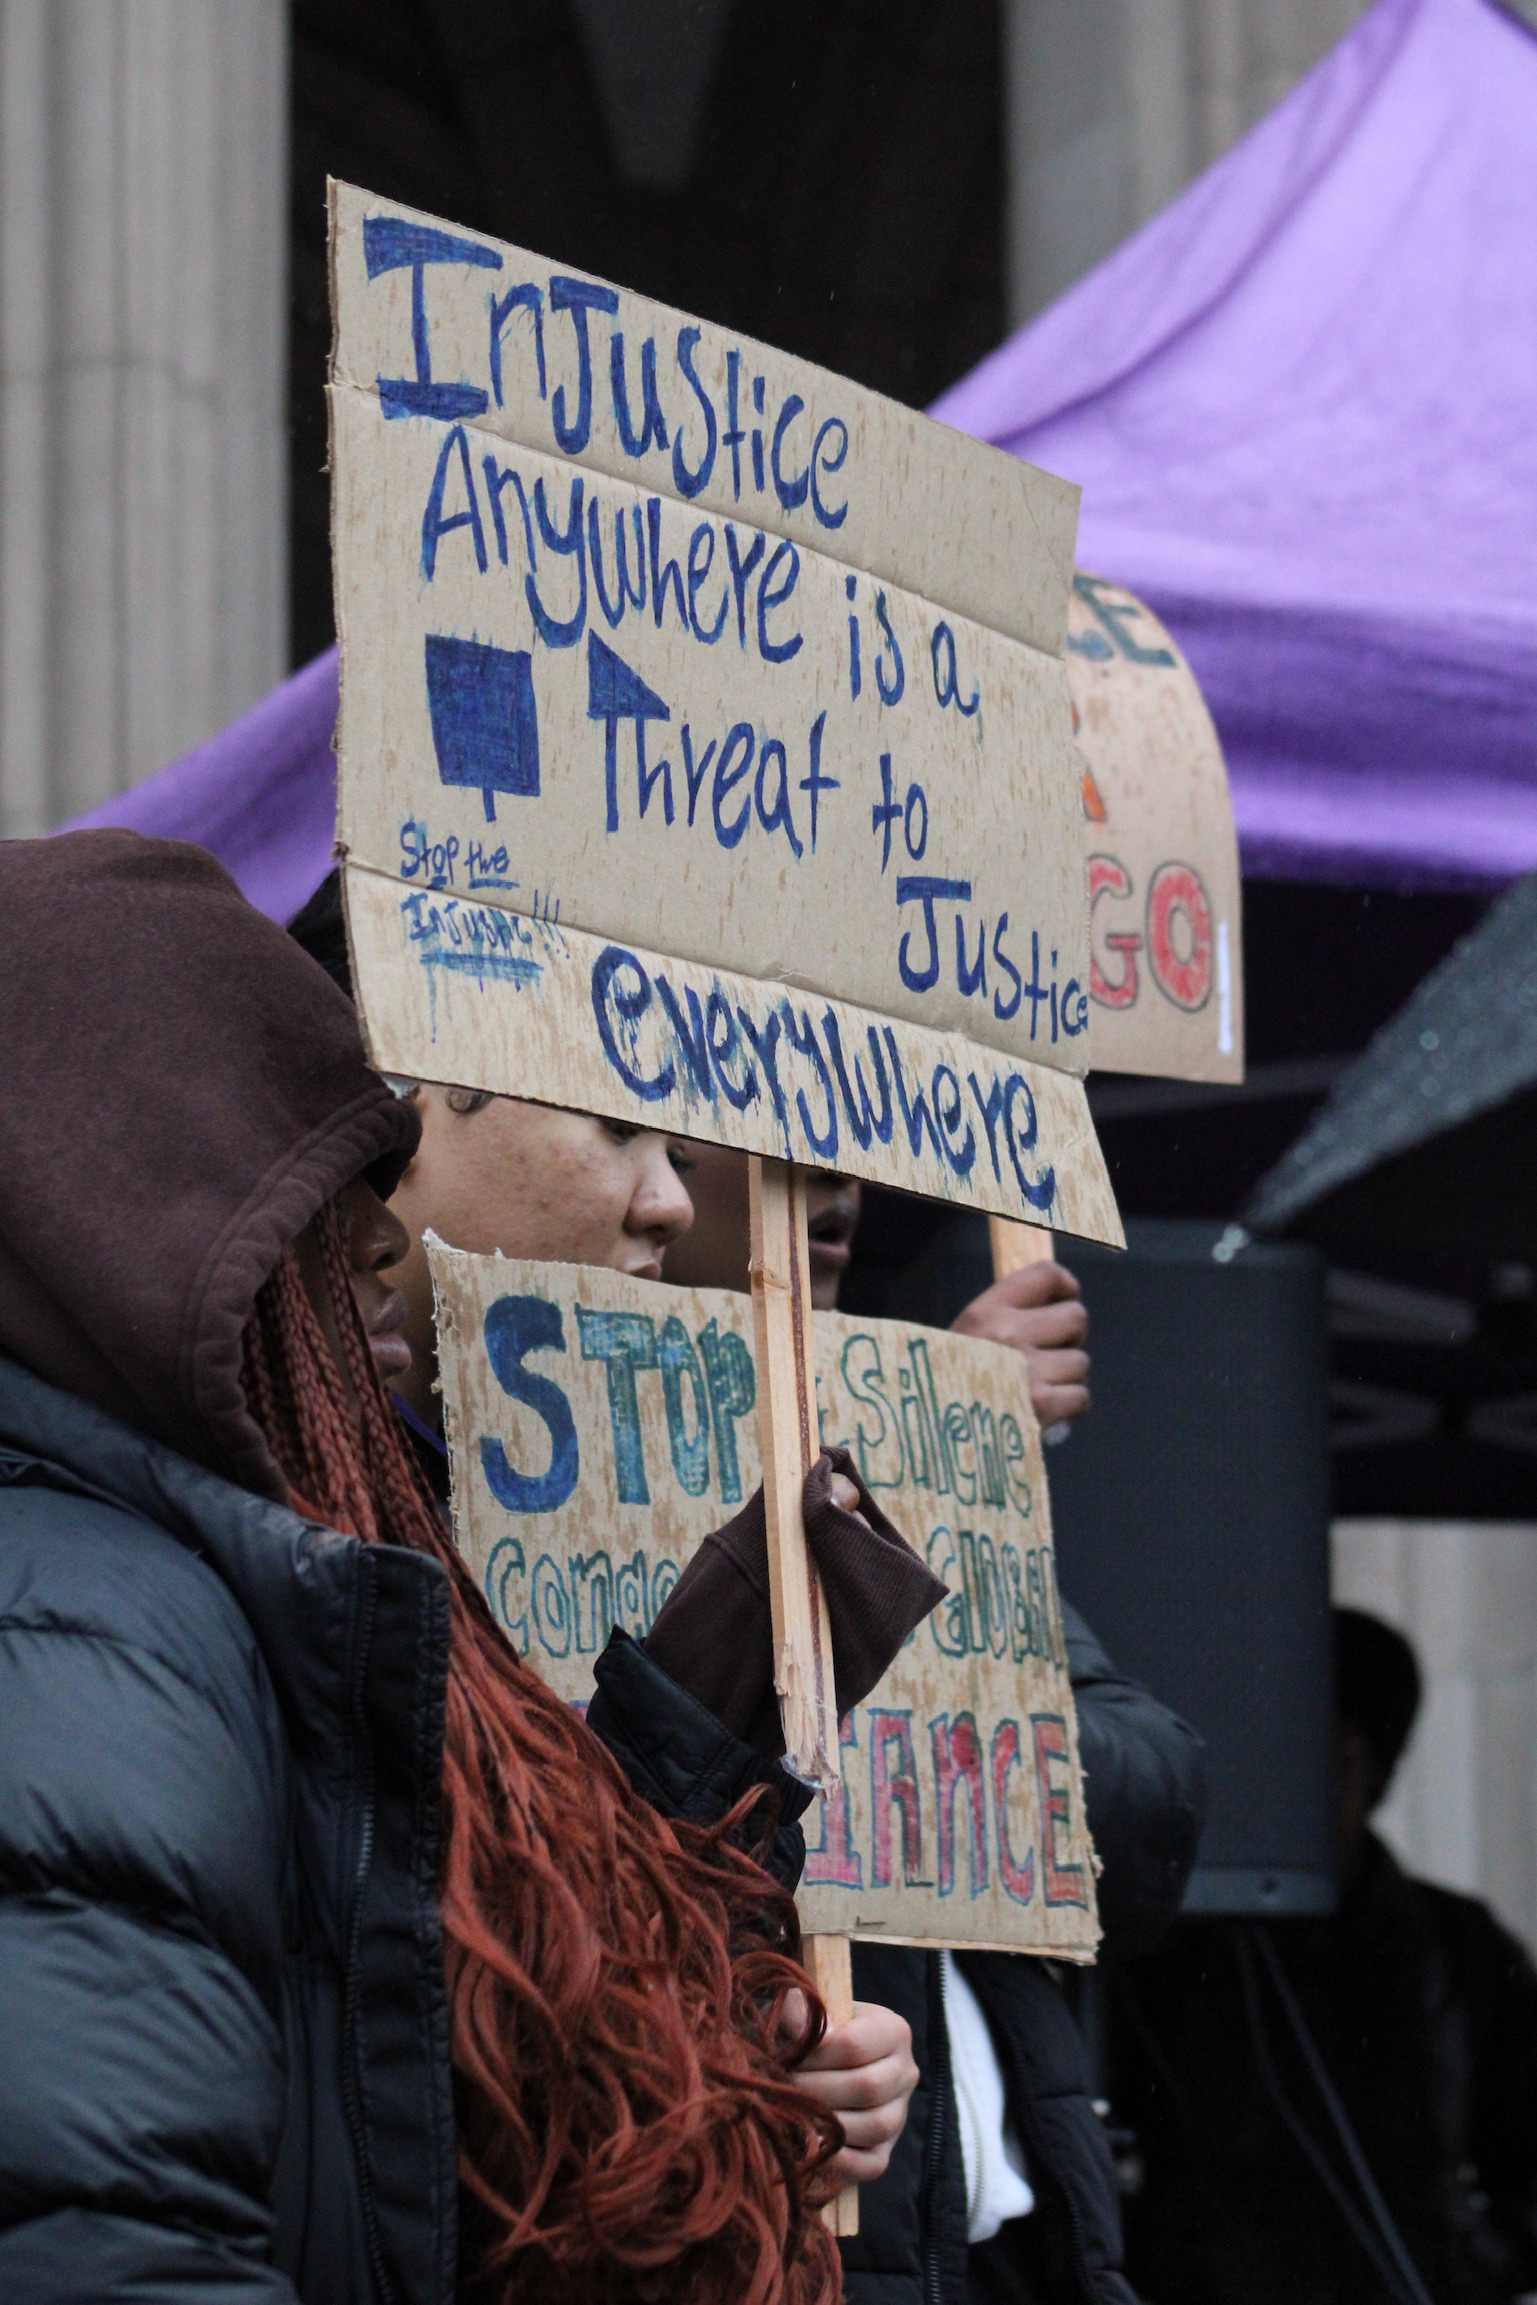 InJustice
Anywhere is a
Threat to
Justice
everywhere
Stop the
InJustice!!!
GO
STOP
Congo
IANCE